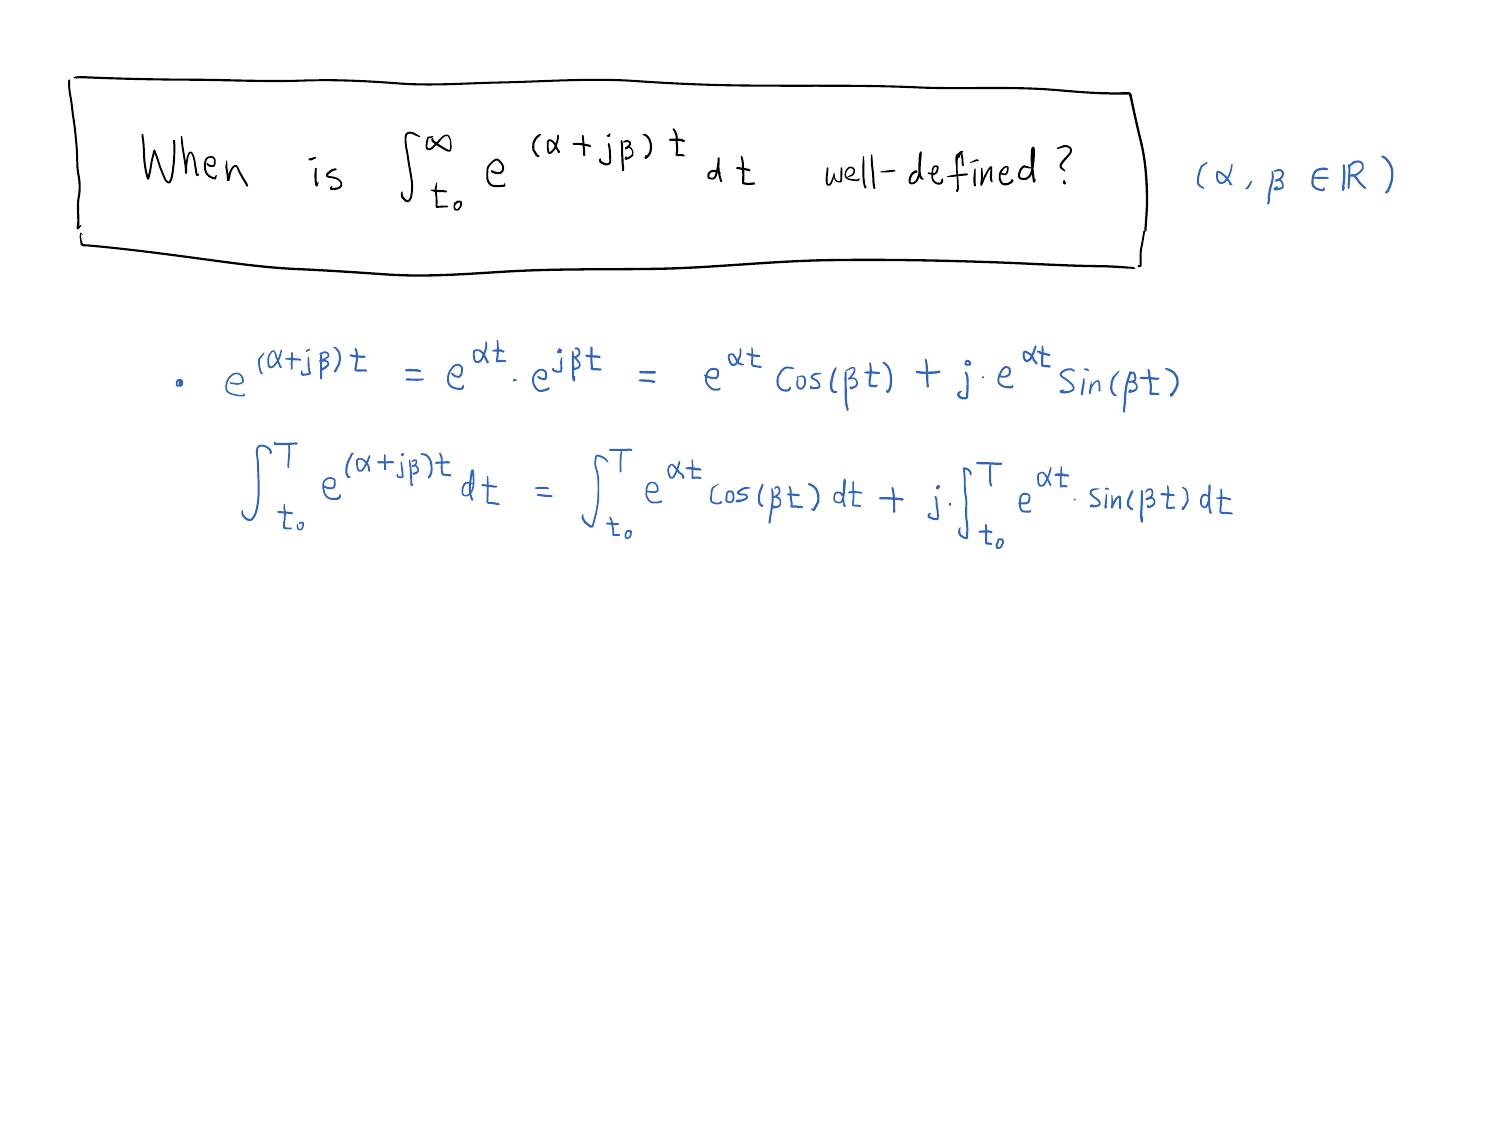 When is ∫_{t₀}^{∞} e^{(α+jβ)t} dt well-defined? (α, β ∈ ℝ)
• e^{(α+jβ)t} = e^{αt} · e^{jβt} = e^{αt} Cos(βt) + j · e^{αt} Sin(βt)
∫_{t₀}^{T} e^{(α+jβ)t} dt = ∫_{t₀}^{T} e^{αt} Cos(βt) dt + j · ∫_{t₀}^{T} e^{αt} · Sin(βt) dt